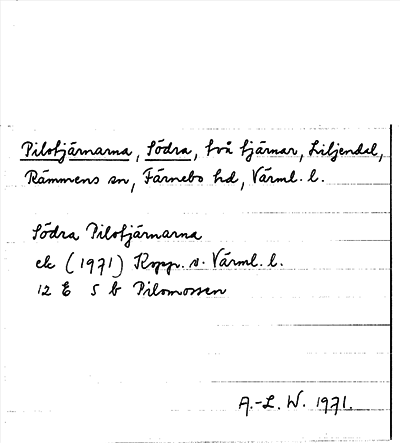 Pilotjärnarna, Södra, två tjärnar, Liljendal,
Rämmens sn, Färnebo hd, Värml. l.
Södra Pilotjärnarna
ek (1971) Kopp. o. Värml. l.
12 E 5 b Pilomossen
A.-L. W. 1971.